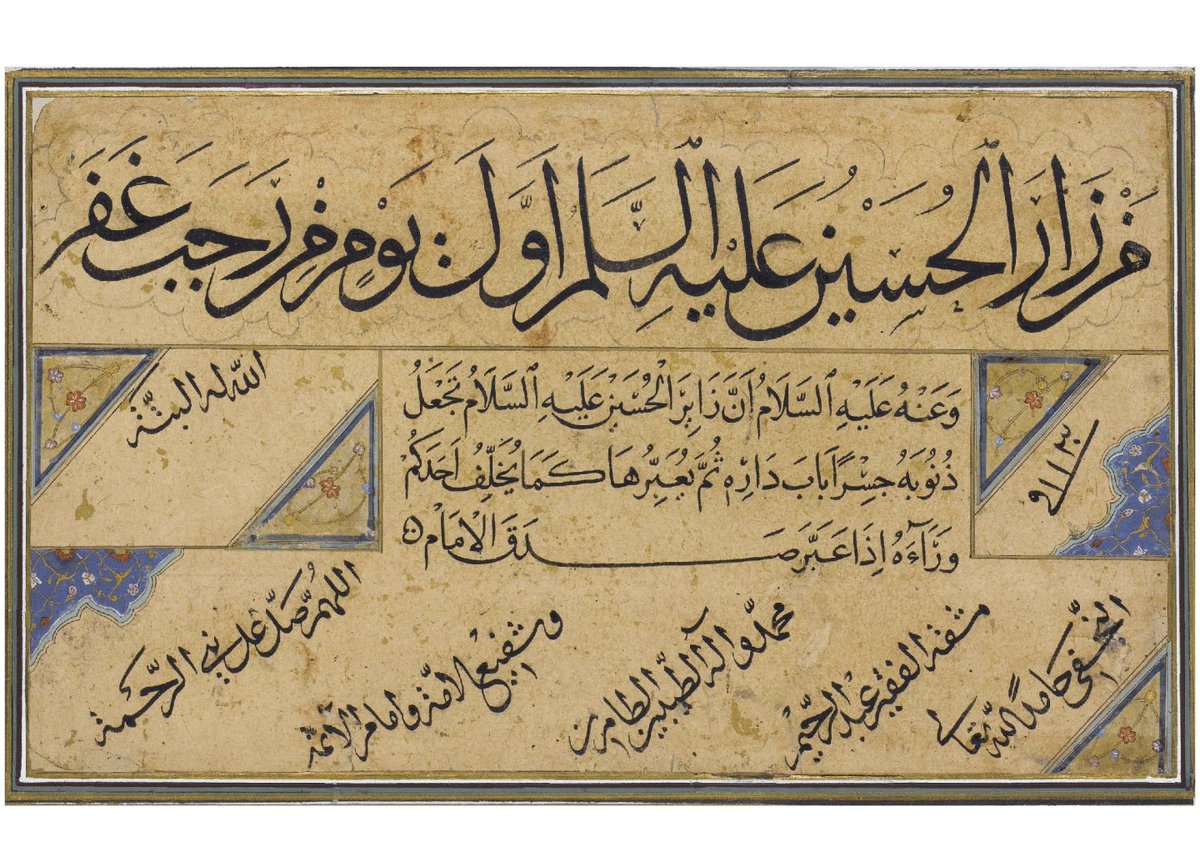 مَنْ زَارَ الْحُسَيْنَ عَلَيْهِ السَّلَمِ اَوَّلَ يَوْمٍ مِنْ رَجَبَ غَفَرَ
الله له البتّة
وَعَنْهُ عَلَيْهِ السَّلَامُ اَنَّ زَايِرَ الْحُسَيْنِ عَلَيْهِ السَّلَامُ تَجْعَلُ
ذُنُوبَهُ جِسْرًا بَابَ دَارِهِ ثُمَّ يُعَبِّرُهَا كَمَا يُخَلِّفُ اَحَدَكُمْ
وَرَآءَهُ اِذَا عَبَرَ صَدَقَ الْاِمَامْ
اللهم صلّ على نبي الرحمة
وشفيع الامّة وامام الائمّة
محمّد وآله الطيبين الطاهرين
مشقه الفقير عبد الرحيم
الحنفى حامدًا لله تعالى